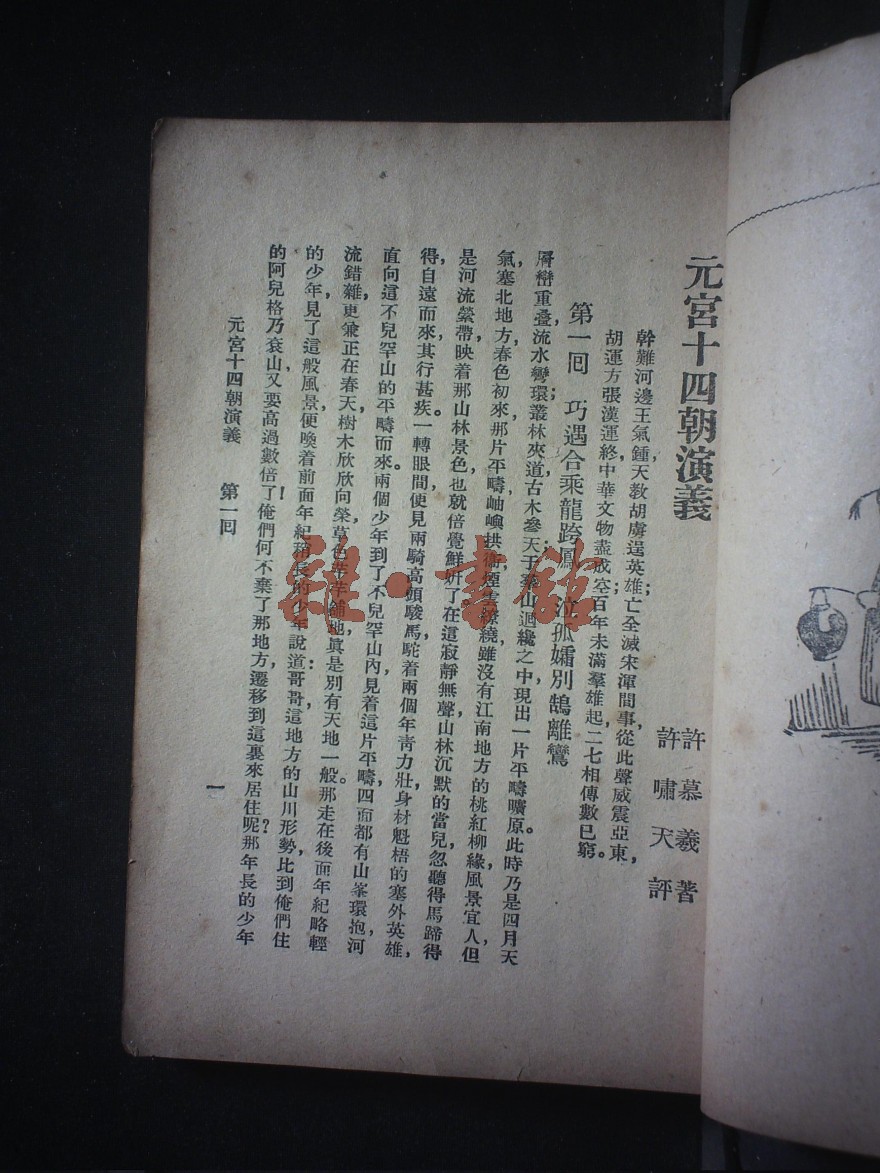 元宮十四朝演義
許慕羲著
許嘯天評
幹難河邊王氣鍾，天教胡虜逞英雄；亡金滅宋渾閒事，從此聲威震亞東，
胡運方張漢運終，中華文物盡成空；百年未滿羣雄起，二七相傳數已窮。
第一回　巧遇合乘龍跨鳳　泣孤孀別鵠離鸞
層巒重疊，流水彎環；叢林夾道，古木參天；于羣山迴纔之中，現出一片平疇曠原。此時乃是四月天
氣，塞北地方，春色初來，那片平疇，岫嶼拱衞，煙雲繚繞，雖沒有江南地方的桃紅柳緣，風景宜人，但
是河流縈帶，映着那山林景色，也就倍覺鮮妍了。在這寂靜無聲，山林沉默的當兒，忽聽得馬蹄得
得，自遠而來，其行甚疾。一轉眼間，便見兩騎高頭駿馬，駝着兩個年靑力壯，身材魁梧的塞外英雄，
直向這不兒罕山的平疇而來。兩個少年到了不兒罕山內，見着這片平疇，四面都有山峯環抱，河
流錯雜，更兼正在春天，樹木欣欣向榮，草色芊芊鋪地，眞是別有天地一般。那走在後面年紀略輕
的少年，見了這般風景，便喚着前面年紀稍長的少年說道：哥哥，這地方的山川形勢，比到俺們住
的阿兒格乃袞山，又要高過數倍了！俺們何不棄了那地方，遷移到這裏來居住呢？那年長的少年
元宮十四朝演義　第一回
一
雜·書館